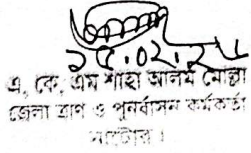 ১৫.০২.২১
এ, কে, এম শাহা আলম মোল্লা
জেলা ত্রাণ ও পুনর্বাসন কর্মকর্তা
নাটোর।